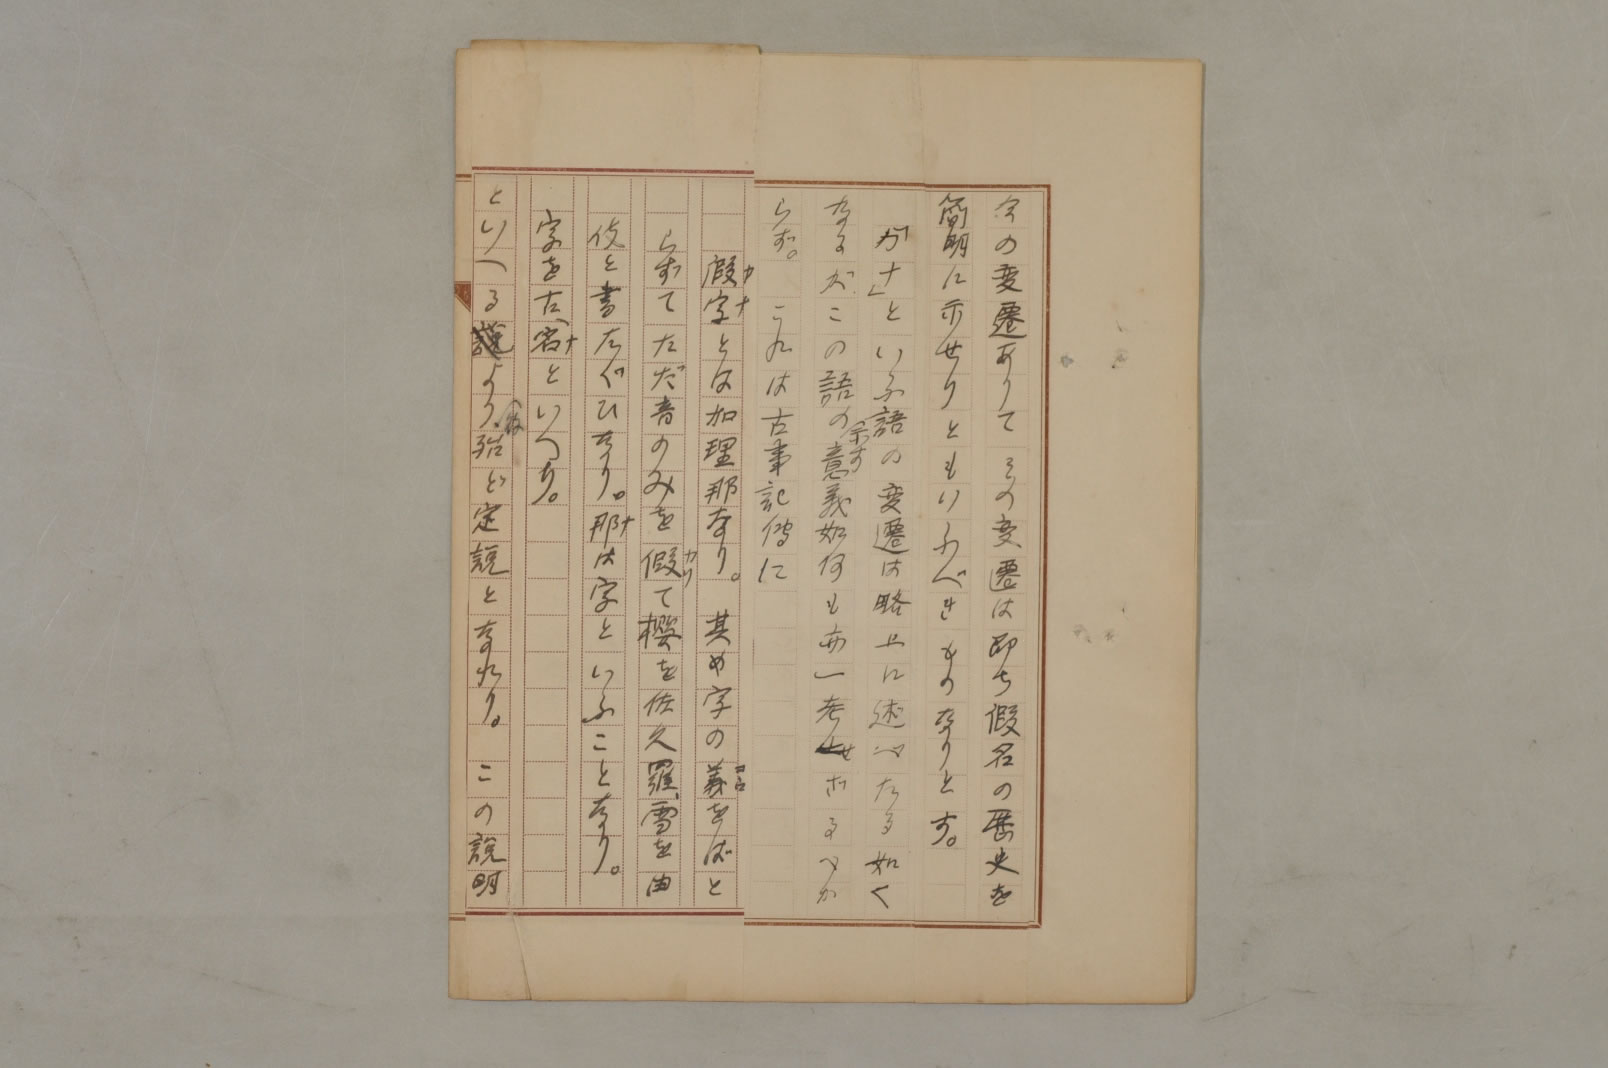 今の変遷ありてその変遷は即ち假名の歴史を
簡明に示せりともいふべきものなりとす。
「カナ」といふ語の変遷は略上に述べたる如く
なるがこの語の意義如何も亦一考せざるべか
らず。これは古事記傳に
假字とは加理那なり。其は字の義をばと
らずてただ音のみを假て櫻を佐久羅、雪を由
伎と書たぐひなり。那は字といふことなり。
字を古名といへり。
といへる説より殆ど定説となれり。この説明